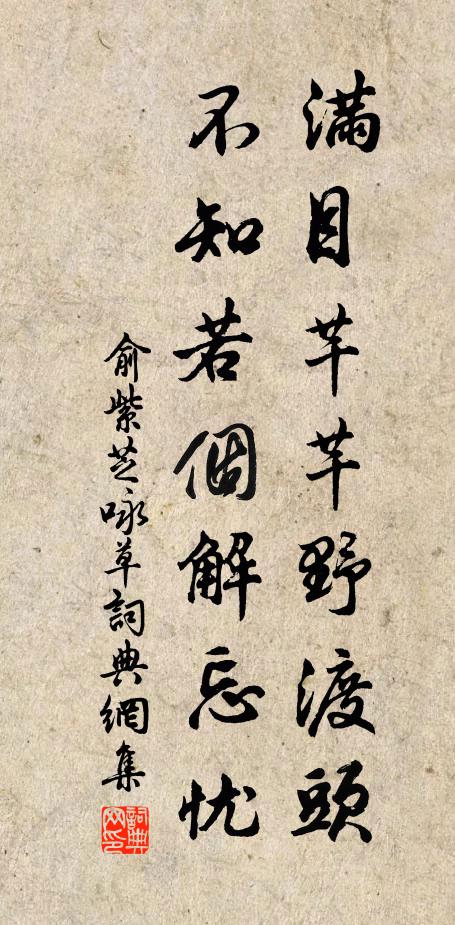 滿目芊芊野渡頭
不知若個解忘忧
俞紫芝咏草詞典網集
詞典網印